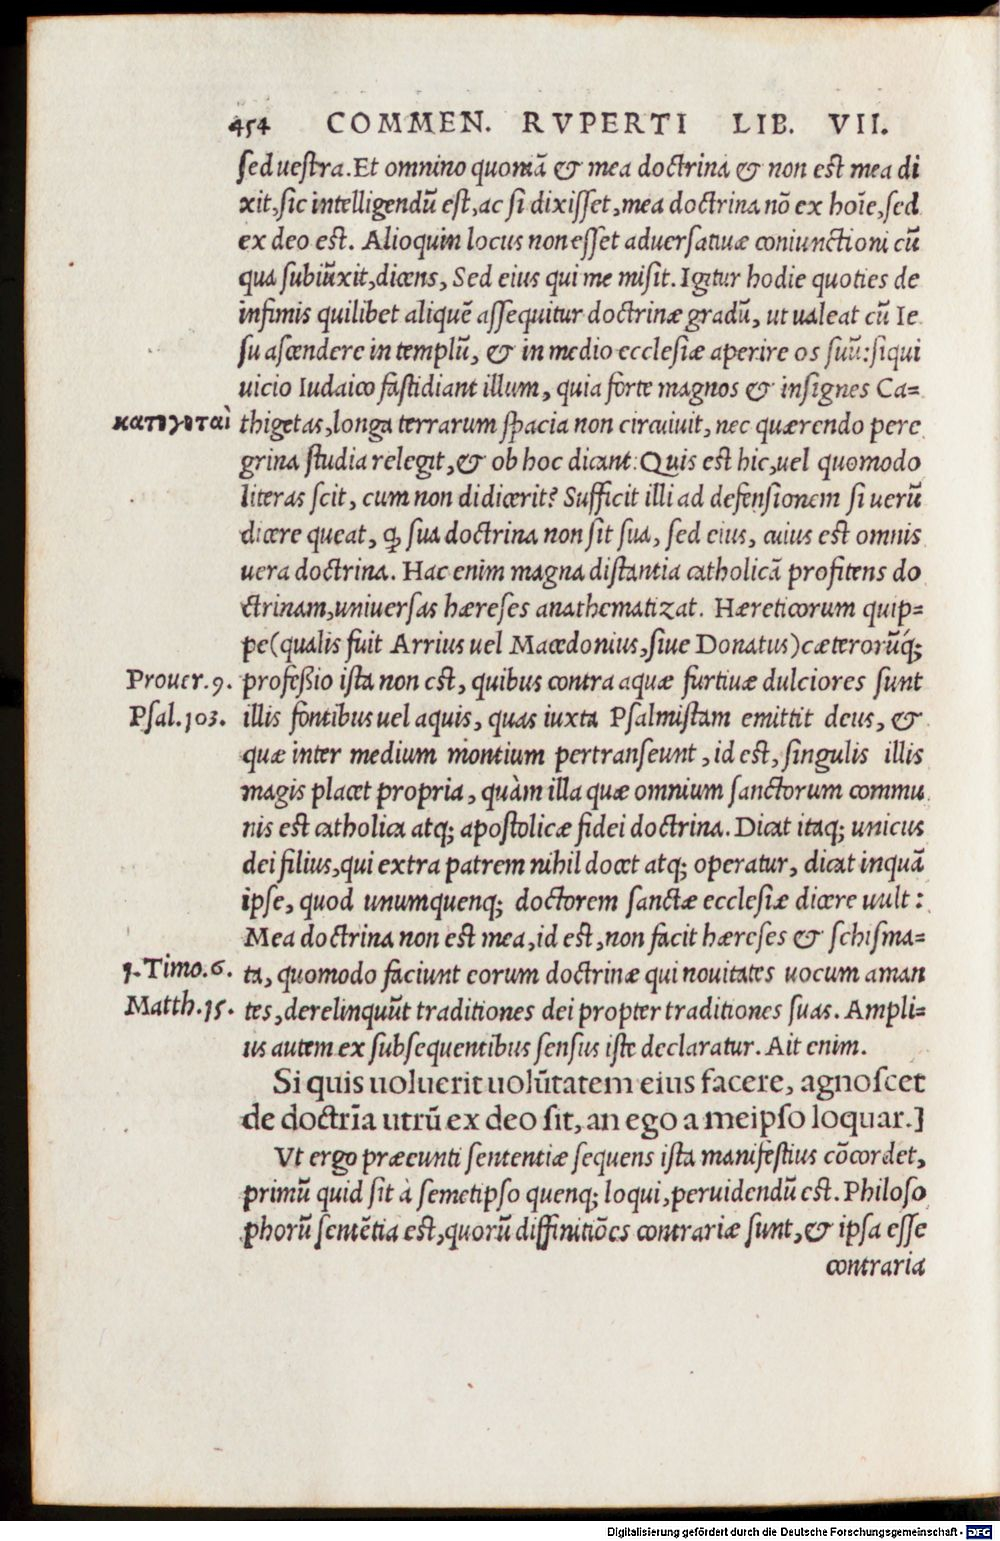 454 COMMEN. RVPERTI LIB. VII.
ſed ueſtra. Et omnino quoniā & mea doctrina & non est mea di
xit, ſic intelligendū eſt, ac ſi dixiſſet, mea doctrina nō ex hoīe, ſed
ex deo est. Alioquin locus non eſſet aduerſatiuæ coniunctioni cū
qua ſubiūxit, dicens, Sed eius qui me miſit. Igitur hodie quoties de
infimis quilibet aliquē aſſequitur doctrinæ gradū, ut ualeat cū Ie
ſu aſcendere in templū, & in medio eccleſiæ aperire os ſuū: ſiqui
uicio Iudaico faſtidiant illum, quia forte magnos & inſignes Ca=
κατηγηταὶ thigetas, longa terrarum ſpacia non circuiuit, nec quærendo pere
grina ſtudia relegit, & ob hoc dicant: Quis est hic, uel quomodo
literas ſcit, cum non didicerit? Sufficit illi ad defenſionem ſi uerū
dicere queat, ꝙ ſua doctrina non ſit ſua, ſed eius, cuius est omnis
uera doctrina. Hac enim magna diſtantia catholicā profitens do
ctrinam, uniuerſas hæreſes anathematizat. Hæreticorum quip=
pe (qualis fuit Arrius uel Macedonius, ſiue Donatus) cæterorūq́;
Prouer. 9. profeßio iſta non est, quibus contra aquæ furtiuæ dulciores ſunt
Pſal. 103. illis fontibus uel aquis, quas iuxta Pſalmiſtam emittit deus, &
quæ inter medium montium pertranſeunt, id est, ſingulis illis
magis placet propria, quàm illa quæ omnium ſanctorum commu
nis est catholica atq; apoſtolicæ fidei doctrina. Dicat itaq; unicus
dei filius, qui extra patrem nihil docet atq; operatur, dicat inquā
ipſe, quod unumquenq; doctorem ſanctæ eccleſiæ dicere uult:
Mea doctrina non est mea, id est, non facit hæreſes & ſchiſma=
1. Timo. 6. ta, quomodo faciunt eorum doctrinæ qui nouitates uocum aman
Matth. 15. tes, derelinquūt traditiones dei propter traditiones ſuas. Ampli=
us autem ex ſubſequentibus ſenſus iſte declaratur. Ait enim.
Si quis uoluerit uolūtatem eius facere, agnoſcet
de doctrīa utrū ex deo ſit, an ego a meipſo loquar.]
Vt ergo præeunti ſententiæ ſequens iſta manifeſtius cōcordet,
primū quid ſit à ſemetipſo quenq; loqui, peruidendū est. Philoſo
phorū ſentētia est, quorū diffinitiōes contrariæ ſunt, & ipſa eſſe
contraria
Digitalisierung gefördert durch die Deutsche Forschungsgemeinschaft - DFG